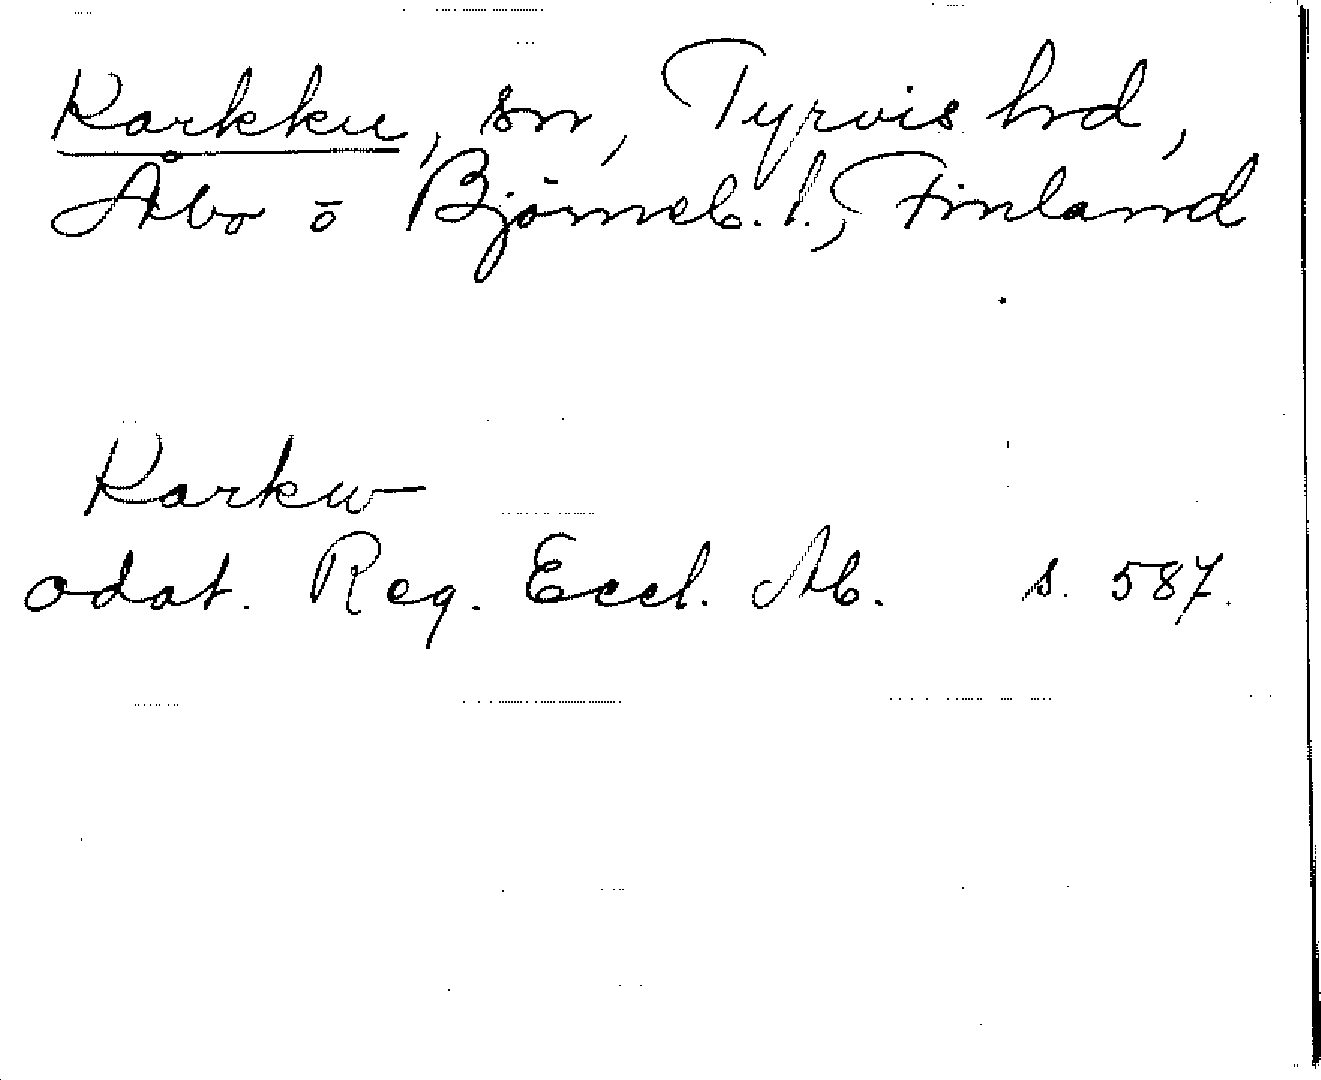 Karkku, sn, Tyrvis hrd,
Åbo o Björneb. l., Finland
Karkw
odat. Reg. Eccl. Ab. s. 587.